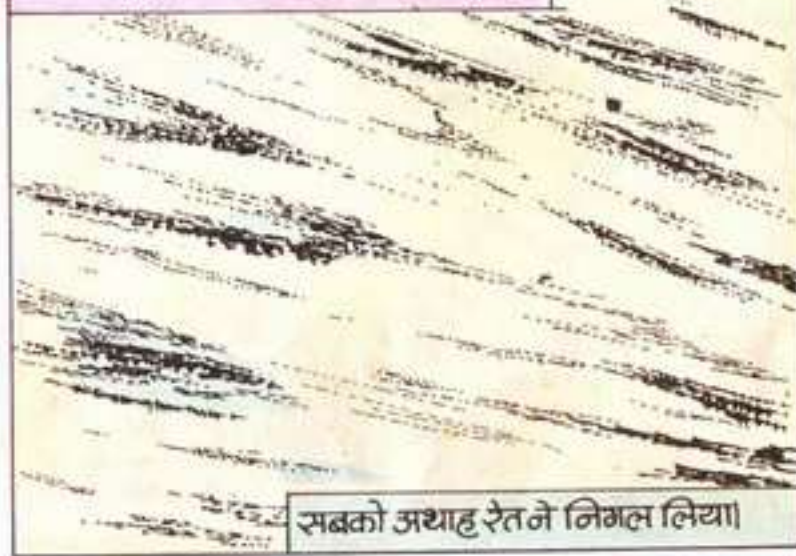 सबको अथाह रेत ने निगल लिया।